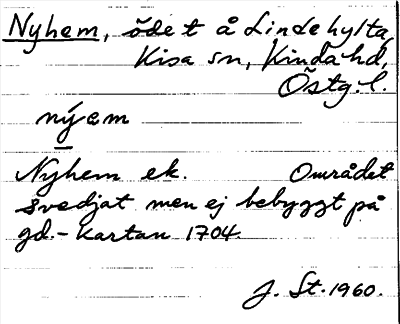 Nyhem, ödet å Lindehylta,
Kisa sn, Kinda hd,
Östg. l.
nýem
Nyhem ek. Området
svedjat men ej bebyggt på
gd.-kartan 1704.
J. St. 1960.